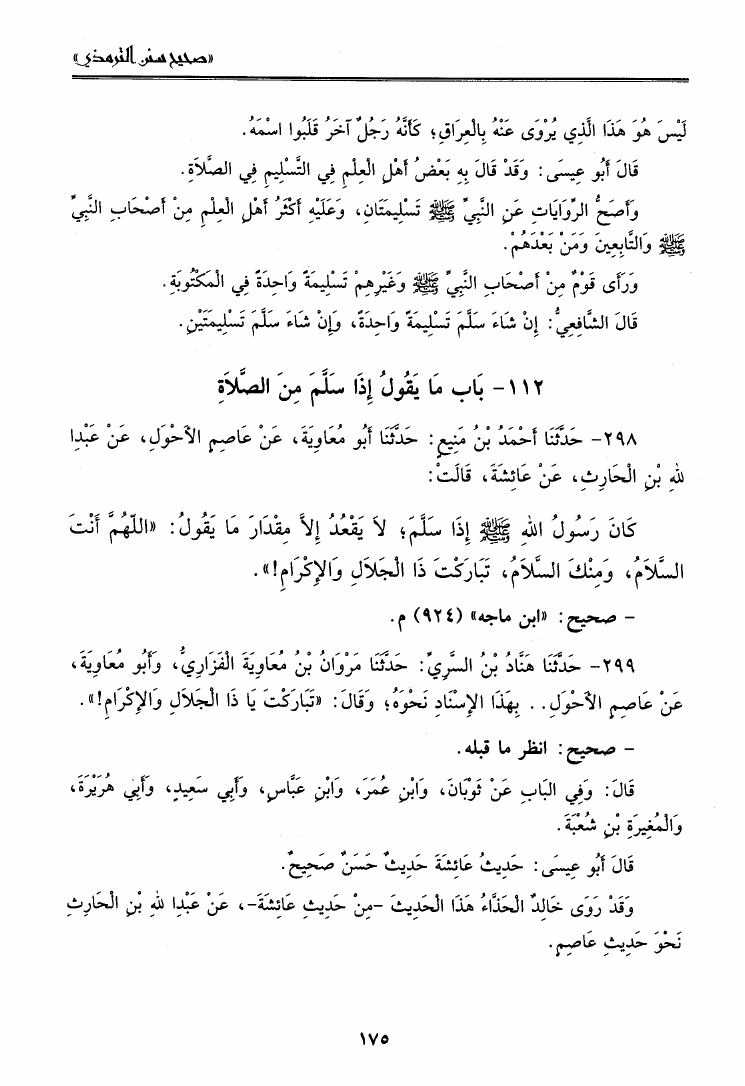 «صحيح سنن الترمذي»
لَيْسَ هُوَ هَذَا الَّذِي يُرْوَى عَنْهُ بِالْعِرَاقِ؛ كَأَنَّهُ رَجُلٌ آخَرُ قَلَبُوا اسْمَهُ.
قَالَ أَبُو عِيسَى: وَقَدْ قَالَ بِهِ بَعْضُ أَهْلِ الْعِلْمِ فِي التَّسْلِيمِ فِي الصَّلَاةِ.
وَأَصَحُّ الرِّوَايَاتِ عَنِ النَّبِيِّ ﷺ تَسْلِيمَتَانِ، وَعَلَيْهِ أَكْثَرُ أَهْلِ الْعِلْمِ مِنْ أَصْحَابِ النَّبِيِّ
ﷺ وَالتَّابِعِينَ وَمَنْ بَعْدَهُمْ.
وَرَأَى قَوْمٌ مِنْ أَصْحَابِ النَّبِيِّ ﷺ وَغَيْرِهِمْ تَسْلِيمَةً وَاحِدَةً فِي الْمَكْتُوبَةِ.
قَالَ الشَّافِعِيُّ: إِنْ شَاءَ سَلَّمَ تَسْلِيمَةً وَاحِدَةً، وَإِنْ شَاءَ سَلَّمَ تَسْلِيمَتَيْنِ.
١١٢- بَاب مَا يَقُولُ إِذَا سَلَّمَ مِنَ الصَّلَاةِ
٢٩٨- حَدَّثَنَا أَحْمَدُ بْنُ مَنِيعٍ: حَدَّثَنَا أَبُو مُعَاوِيَةَ، عَنْ عَاصِمٍ الْأَحْوَلِ، عَنْ عَبْدِا
للهِ بْنِ الْحَارِثِ، عَنْ عَائِشَةَ، قَالَتْ:
كَانَ رَسُولُ اللهِ ﷺ إِذَا سَلَّمَ؛ لَا يَقْعُدُ إِلاَّ مِقْدَارَ مَا يَقُولُ: «اللّهُمَّ أَنْتَ
السَّلَامُ، وَمِنْكَ السَّلَامُ، تَبَارَكْتَ ذَا الْجَلَالِ وَالْإِكْرَامِ!».
– صحيح: «ابن ماجه» (٩٢٤) م.
٢٩٩- حَدَّثَنَا هَنَّادُ بْنُ السَّرِيِّ: حَدَّثَنَا مَرْوَانُ بْنُ مُعَاوِيَةَ الْفَزَارِيُّ، وَأَبُو مُعَاوِيَةَ،
عَنْ عَاصِمٍ الْأَحْوَلِ.. بِهَذَا الْإِسْنَادِ نَحْوَهُ؛ وَقَالَ: «تَبَارَكْتَ يَا ذَا الْجَلَالِ وَالْإِكْرَامِ!».
– صحيح: انظر ما قبله.
قَالَ: وَفِي الْبَابِ عَنْ ثَوْبَانَ، وَابْنِ عُمَرَ، وَابْنِ عَبَّاسٍ، وَأَبِي سَعِيدٍ، وَأَبِي هُرَيْرَةَ،
وَالْمُغِيرَةِ بْنِ شُعْبَةَ.
قَالَ أَبُو عِيسَى: حَدِيثُ عَائِشَةَ حَدِيثٌ حَسَنٌ صَحِيحٌ.
وَقَدْ رَوَى خَالِدٌ الْحَذَّاءُ هَذَا الْحَدِيثَ –مِنْ حَدِيثِ عَائِشَةَ–، عَنْ عَبْدِا للهِ بْنِ الْحَارِثِ
نَحْوَ حَدِيثِ عَاصِمٍ.
١٧٥